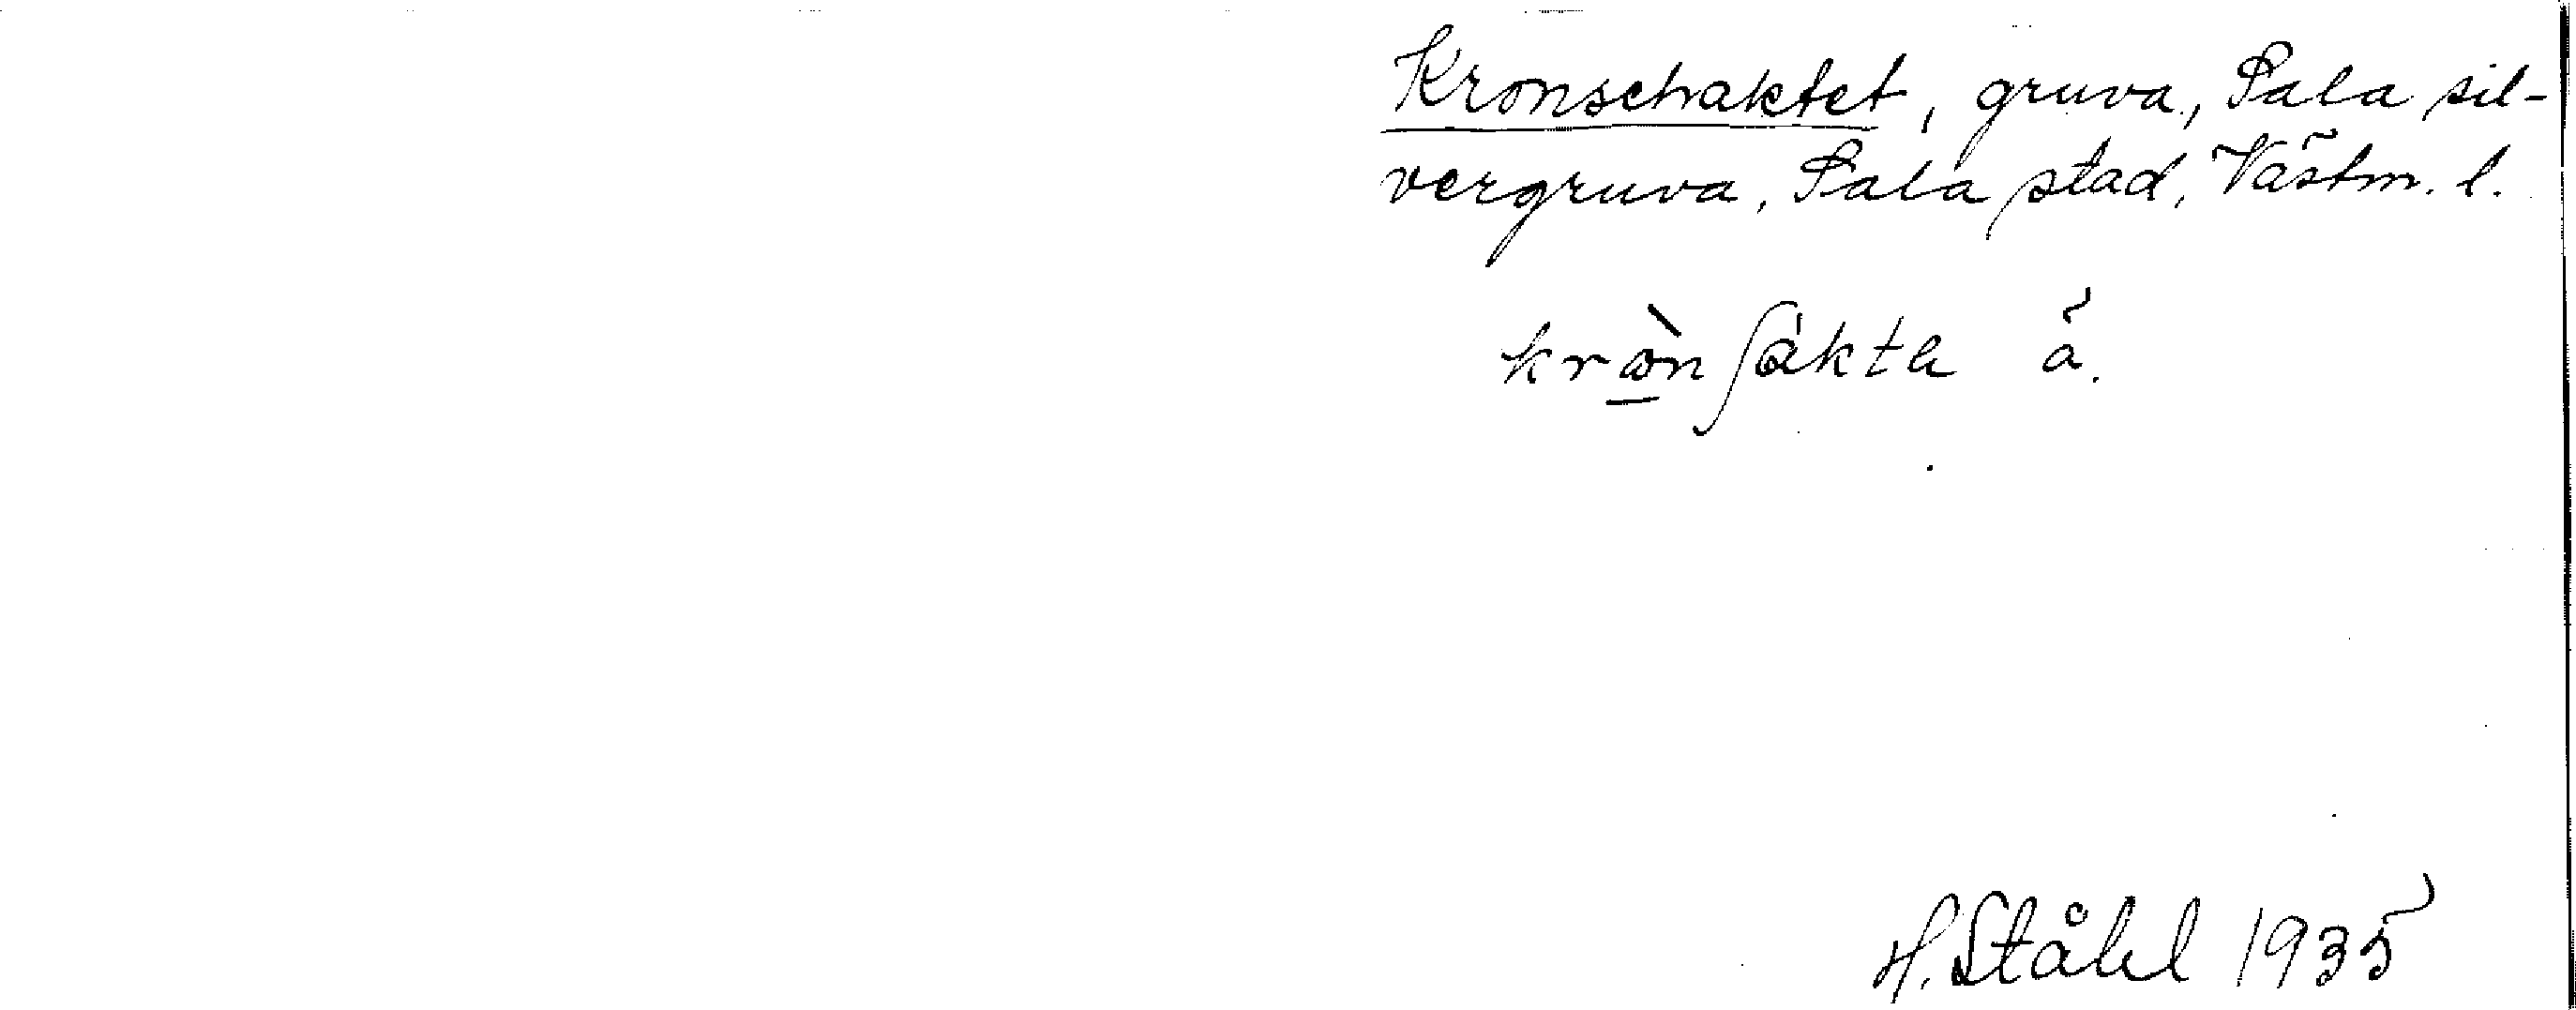 Kronschaktet, gruva, Sala sil-
vergruva, Sala stad, Västm. l.
krὼ̱nʃákta ä.
H. Ståhl 1935